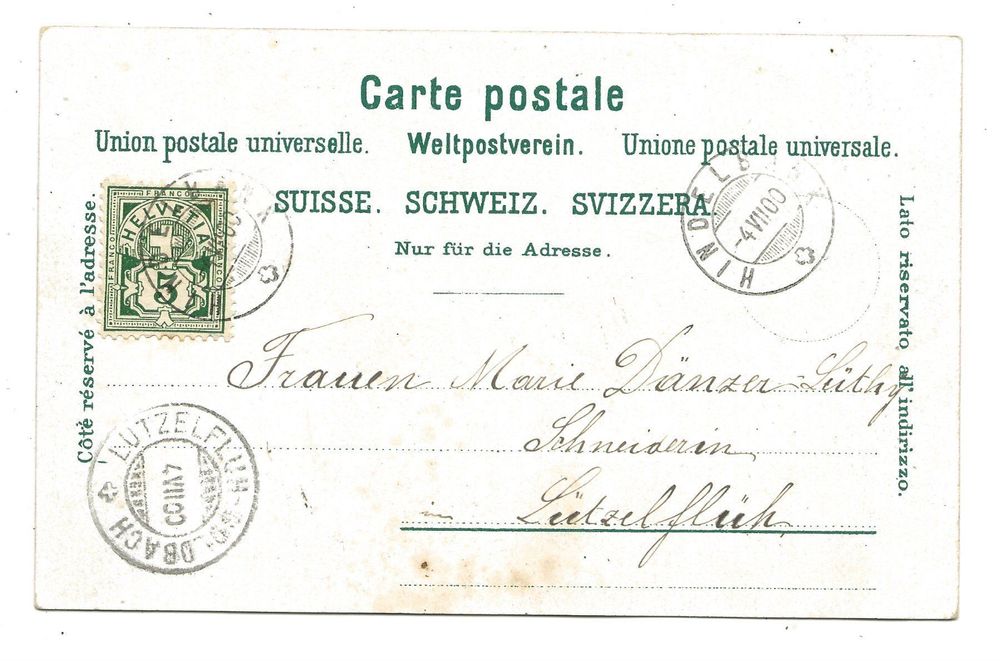 Carte postale
Union postale universelle. Weltpostverein. Unione postale universale.
SUISSE. SCHWEIZ. SVIZZERA.
Nur für die Adresse.
Côté réservé à l'adresse.
Lato riservato all' indirizzo.
FRANCO
FRANCO
FRANCO
HELVETIA
5
HINDELBANK
-4VII00
Frauen Marie Dänzer-Lüthy
Schneiderin
in Lützelflüh
LÜTZELFLÜH-GOLDBACH
4VII00